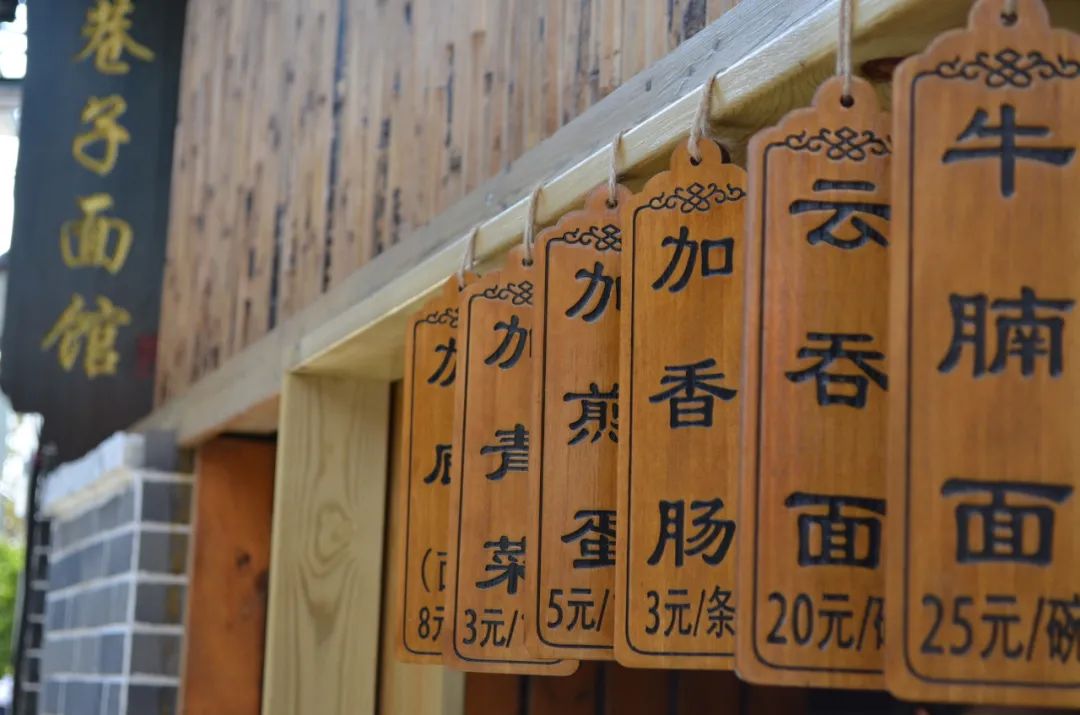 巷子面馆
加
加青菜
3元/
加煎蛋
5元/
加香肠
3元/条
云吞面
20元/碗
牛腩面
25元/碗
8元